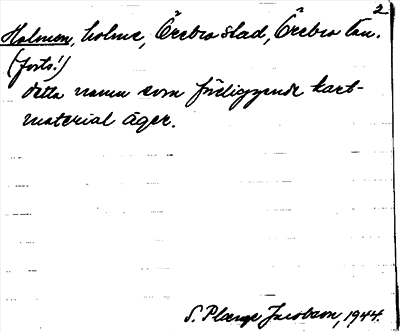 2
Holmen, holme, Örebro stad, Örebro län.
(forts!)
detta namn som föreliggande kart-
material äger.
S. Plange Jacobson, 1944.